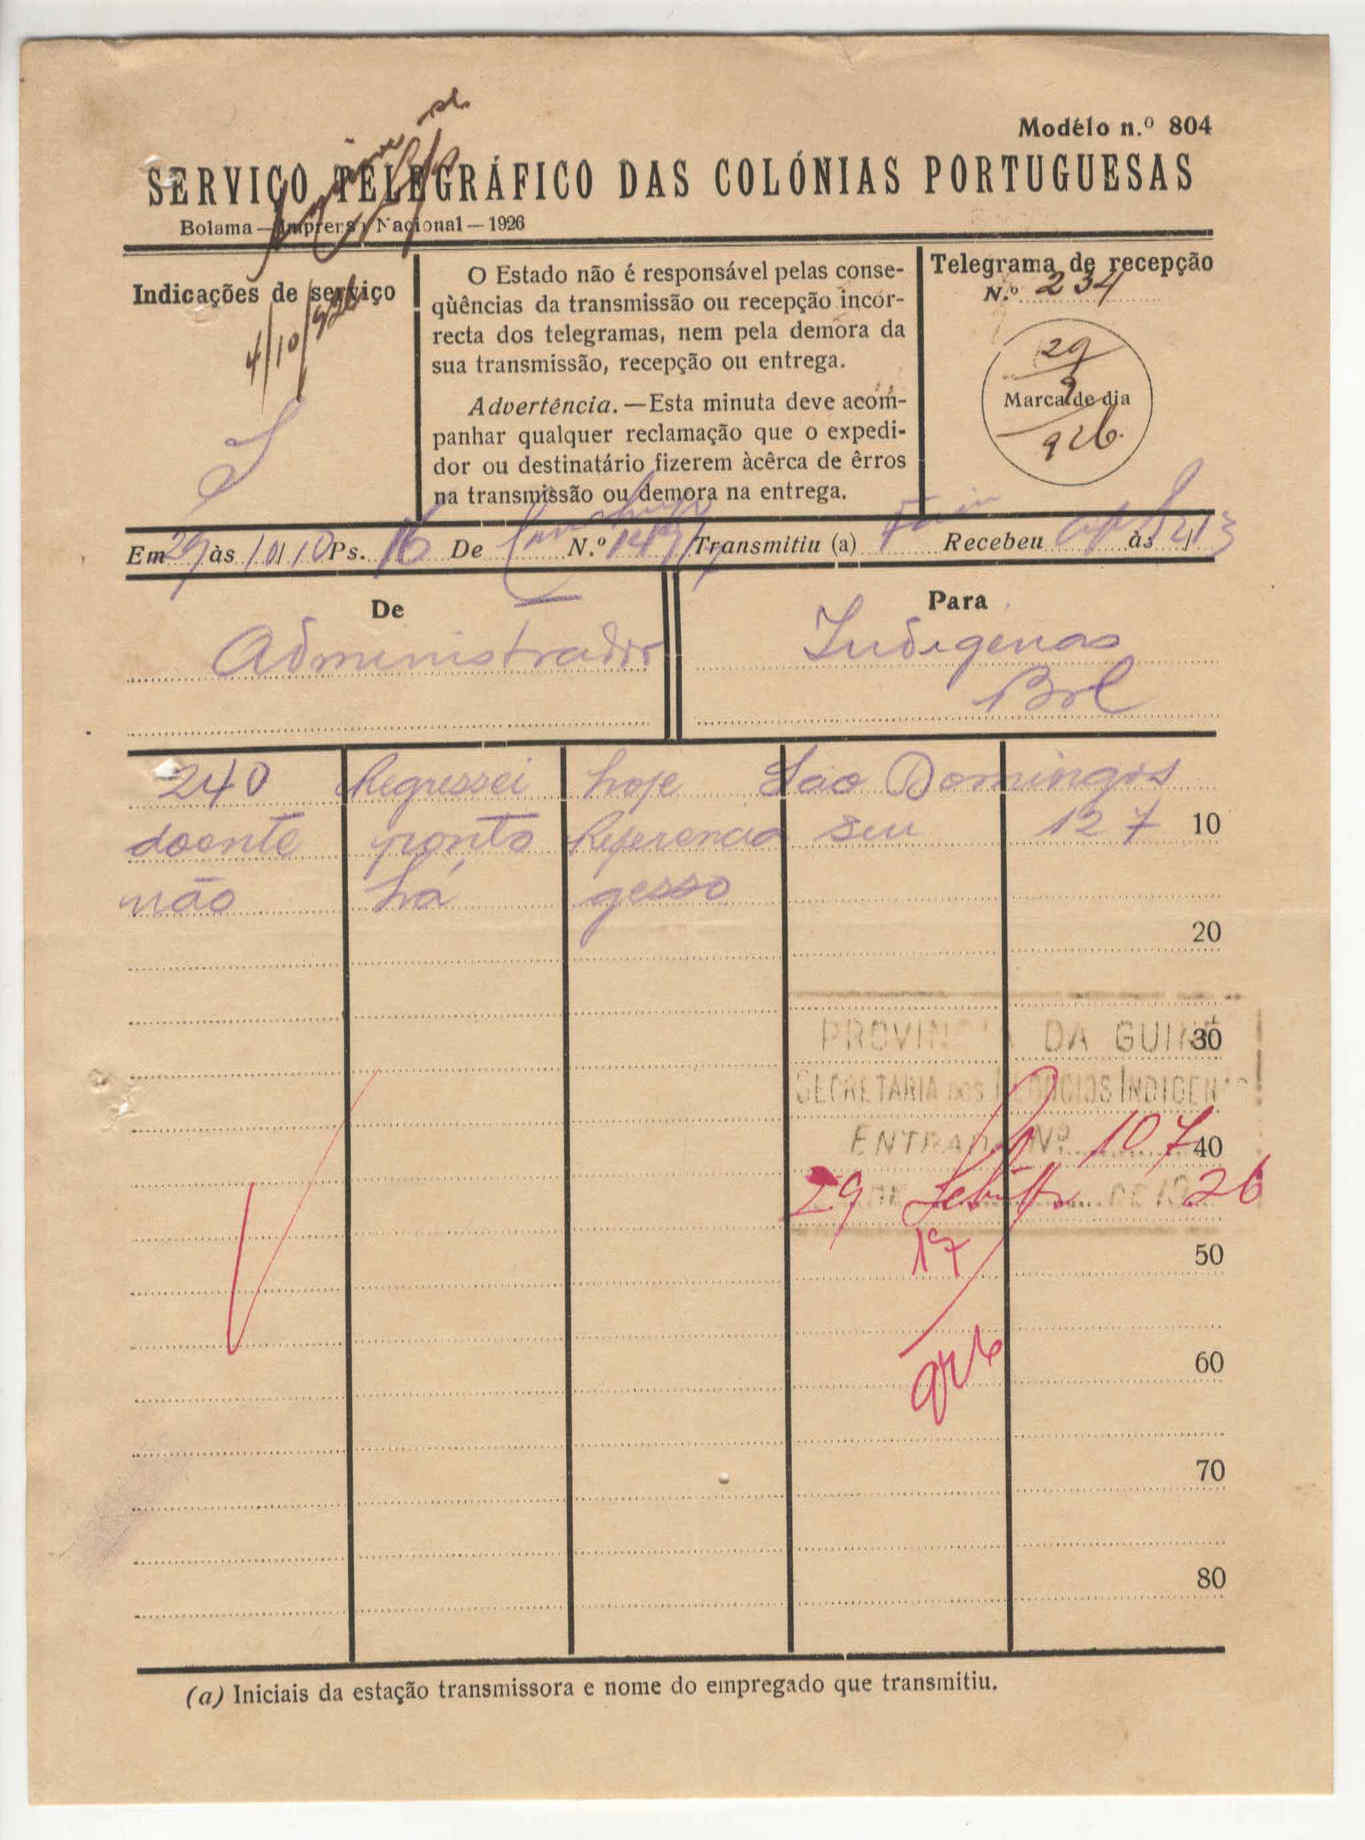 Modélo n.º 804
SERVIÇO TELEGRÁFICO DAS COLÓNIAS PORTUGUESAS
Bolama — Imprensa Nacional — 1926
Indicações de serviço
4/10/926
O Estado não é responsável pelas conse-
qüências da transmissão ou recepção incor-
recta dos telegramas, nem pela demora da
sua transmissão, recepção ou entrega.
Advertência. — Esta minuta deve acom-
panhar qualquer reclamação que o expedi-
dor ou destinatário fizerem àcêrca de êrros
na transmissão ou demora na entrega.
Telegrama de recepção
N.º 234
29
9
Marca de dia
926
Em 29 às 10 10 Ps. 16 De N.º Transmitiu (a) Recebeu às
De
Administrador
Para
Indigenas
Bol
240 Regressei hoje São Domingos
doente ponto Referencia seu 127 10
não há gesso
20
30
PROVINCIA DA GUINÉ
SECRETARIA DOS NEGOCIOS INDIGENAS
40
ENTRADA Nº 107
29 DE Setbro DE 1926
17
50
926
60
70
80
(a) Iniciais da estação transmissora e nome do empregado que transmitiu.